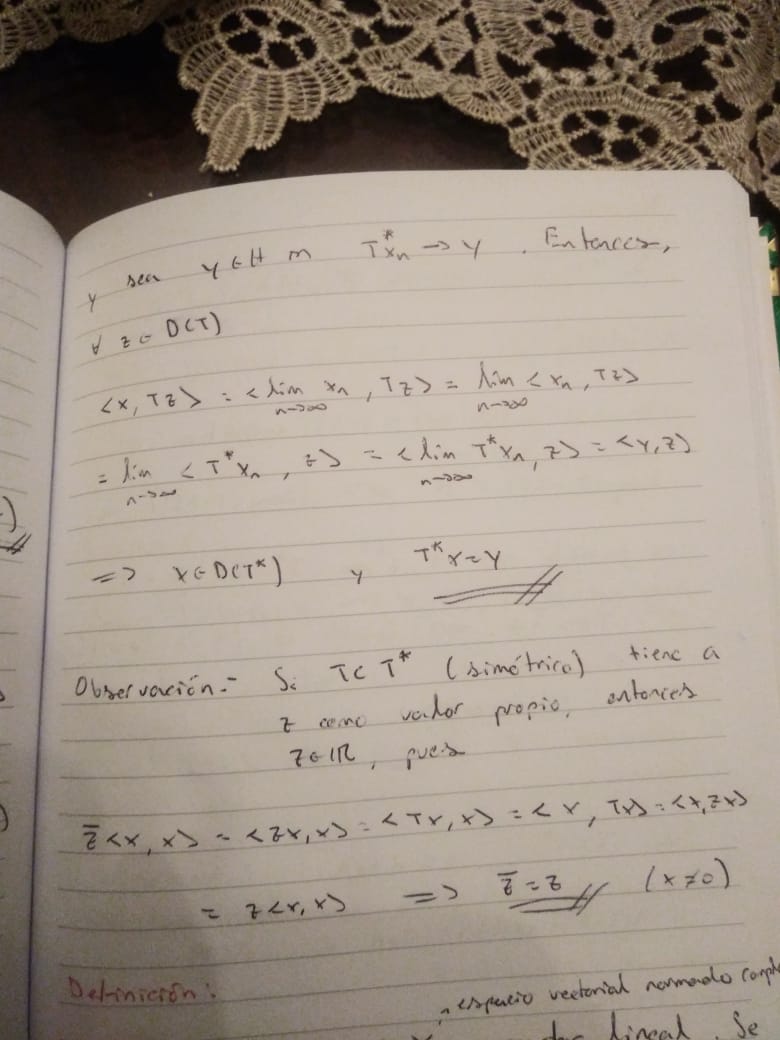 y sea y ∈ H ∋ T*xₙ → y . Entonces,
∀ z ∈ D(T)
<x, Tz> = <lim xₙ, Tz> = lim <xₙ, Tz>
n→∞ n→∞
= lim <T*xₙ, z> = <lim T*xₙ, z> = <y, z>
n→∞ n→∞
=> x ∈ D(T*) y T*x = y
Observación.- Si T ⊂ T* (simétrico) tiene a
z como valor propio, entonces
z ∈ ℝ, pues
z̄<x, x> = <zx, x> = <Tx, x> = <x, Tx> = <x, zx>
= z<x, x> => z̄ = z (x≠0)
Definición:
espacio vectorial normado
lineal. Se